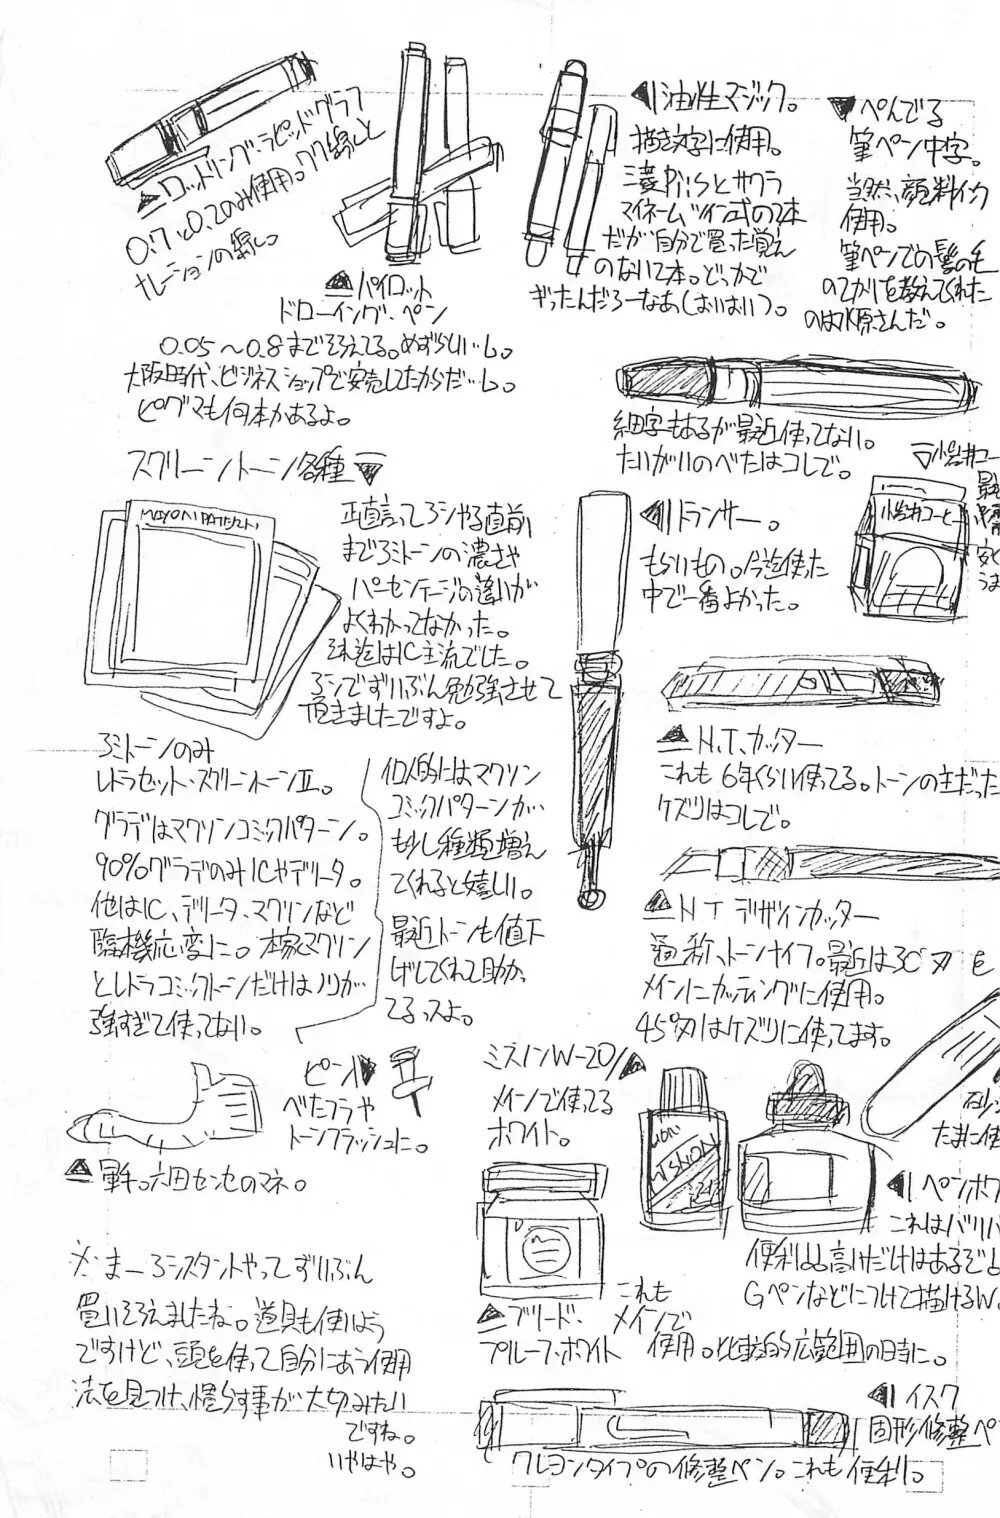 ▲ロットリング・ラピッドグラフ
0.7と0.2のみ使用。ワク線と
ナレーションの線し。
▲パイロット
ドローイング・ペン
0.05〜0.8までそろえてる。めずらしい…し。
大阪時代、ビジネスショップで安売してたからだ…し。
ピグマも何本かあるよ。
◀油性マジック。
描き文字に使用。
三菱Piisとサクラ
マイネームツイン式の2本
だが自分で買った覚え
のない2本。どっかで
ぎったんだろーなあ(おいおい)。
▼ぺんてる
筆ペン中字。
当然、顔料インク
使用。
筆ペンでの髪の毛
のてかりを教えてくれた
のは 原さんだ。
細字もあるが最近使ってない。
たいがいのべたはコレで。
スクリーントーン各種▼
MAXON PATTERN
正直言ってアシやる直前
までアミトーンの濃さや
パーセンテージの違いが
よくわかってなかった。
それ迄はIC主流でした。
アシでずいぶん勉強させて
頂きましたですよ。
アミトーンのみ
レトラセット・スクリーントーンⅡ。
グラデはマクソンコミックパターン。
90%グラデのみICやデリータ。
他はIC、デリータ、マクソンなど
臨機応変に。本家マクソン
とレトラコミックトーンだけはノリが
強すぎて使ってない。
個人的にはマクソン
コミックパターンが
も少し種類増え
てくれると嬉しい。
最近トーンも値下
げしてくれて助かっ
てるっスよ。
◀トランサー。
もらいもの。今迄使った
中で一番よかった。
▽小岩井コー
最
安く
うま
小岩井コーヒー
▲N.T.カッター
これも6年くらい使ってる。トーンの主だった
ケズリはコレで。
▲NTデザインカッター
通称、トーンナイフ。最近は30°刃を
メインにカッティングに使用。
45°刃はケズリに使ってます。
砂
たまに使
ピン▶
べたフラや
トーンフラッシュに。
▲軍手。六田センセのマネ。
ミスノンW-20▲
メインで使ってる
ホワイト。
MISNON
◀ペンホワ
これはバリバ
便利。ちょと高いだけはあるぞよ
Gペンなどにつけて描けるW。
▲ブリード・
プルーフ・ホワイト
これも
メインで
使用。比較的広範囲の時に。
◀イスク
固形修整ペ
クレヨンタイプの修整ペン。これも便利。
※まーアシスタントやってずいぶん
買いそろえましたね。道具も使いよう
ですけど、頭を使って自分にあう使用
法を見つけ、慣らす事が大切みたい
ですね。
いやはや。